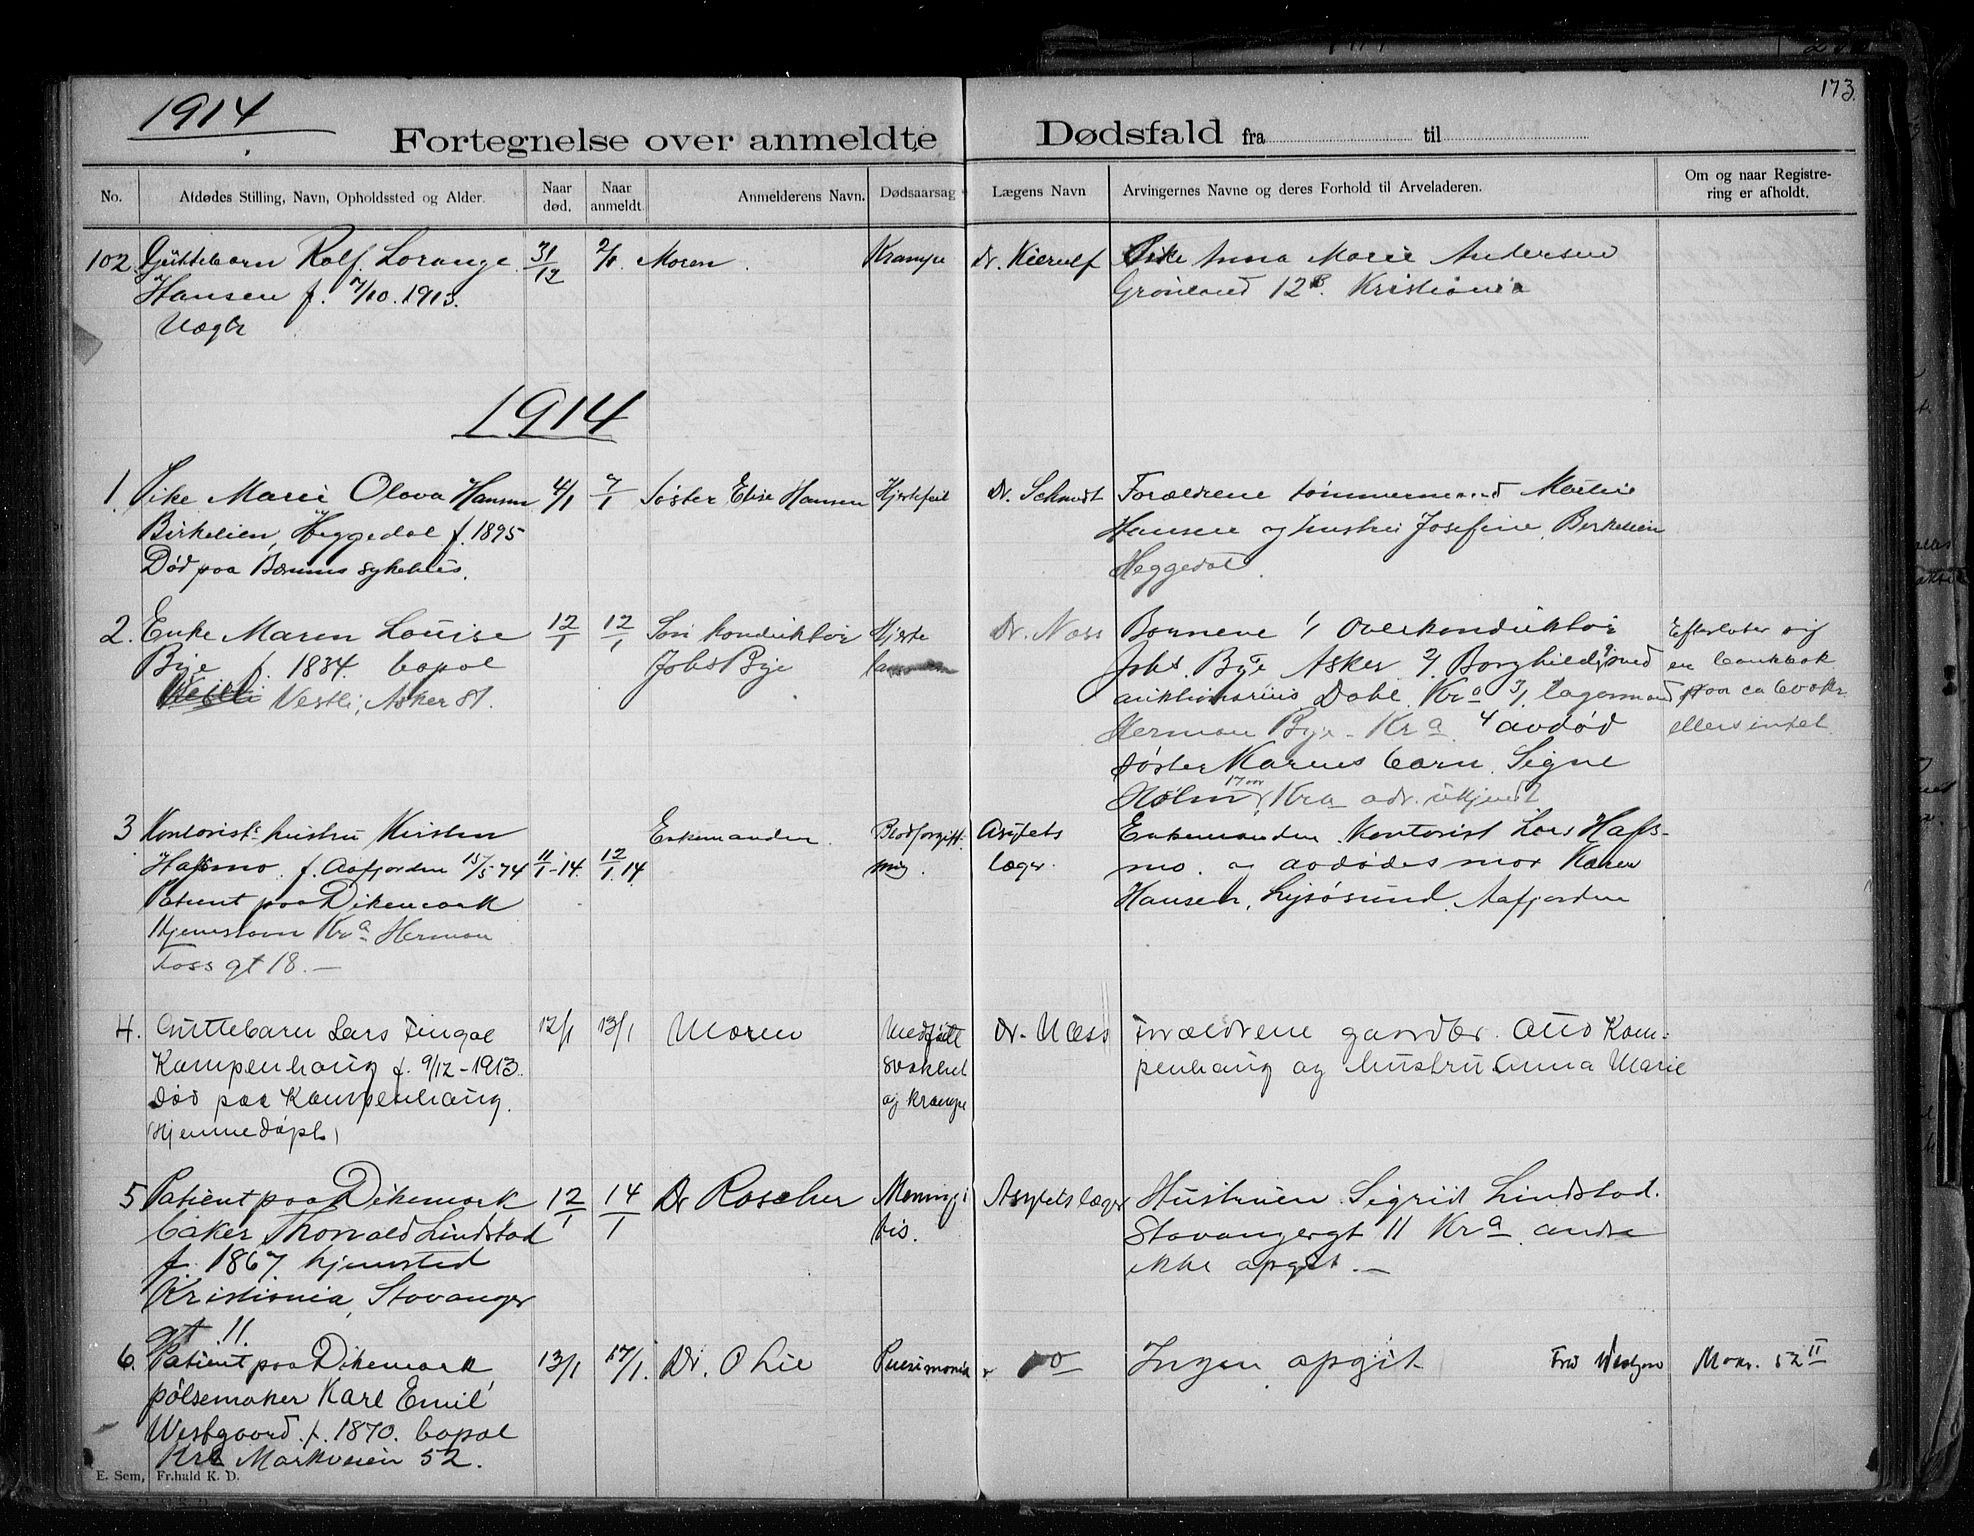 173.
1914
Fortegnelse over anmeldte Dødsfald fra til
No. Afdødes Stilling, Navn, Opholdssted og Alder. Naar død. Naar anmeldt. Anmelderens Navn. Dødsaarsag Lægens Navn Arvingernes Navne og deres Forhold til Arveladeren. Om og naar Registrering er afholdt.
102. Guttebarn Rolf Lorange 31/12 2/1 Moren. Krampe Dr. Kierulf Pike Anna Marie Andersen
Hansen f. 7/10.1913. Grønland 12 B. Kristiania
1914
1. Pike Marie Olava Hansen 4/1 7/1 Søster Elise Hansen Hjertefeil Dr. Schmidt Forældrene tømmermand Martin
Birkelien, Heggedal f. 1895 Hansen og hustru Josefine, Berkelien
Død paa Bærums sykehus. Heggedal.
2. Enke Maren Louise 12/1 12/1 Søn konduktør Hjerte Dr. Næss Børnene 1/ Overkonduktør Efterlater sig
Bye f. 1834. bopæl Johs Bye Johs. Bye Asker 2/ Borghild, med en bankbok
Vestli, Asker st. auktionarius Dahl. Kra 3/ lagermand paa ca 600 kr.
Herman Bye. Kra. 4 avdød ellers intet
søster Karens barn. Signe
Holm 17 aar, Kra adr. ukjendt
3 Kontorist hustru Kirsten Enkemanden. Blodforgift- Asylets Enkemanden Kontorist Lars Hafs-
Hafsmo. f. Aafjorden 15/5-74 11/1-14. 12/1.14. ning. læger. mo. og avdødes mor Karen
Patient paa Dikemark Hansen, Lysøsund. Aafjorden
Hjemstavn Kra Herman
Foss gt 18. —
4. Guttebarn Lars Fingal 12/1 13/1 Moren Medfødt Dr. Næss Forældrene gaardbr. Otto Kam-
Kampenhaug f. 9/12-1913. svakhet penhaug og hustru Anna Marie
Død paa Kampenhaug. og krampe
(Hjemmedøpt)
5 Patient paa Dikemark 12/1 14/1 Dr Roscher Meningi Asyletslæger Hustruen Sigrid Lindstad.
baker Thorvald Lindstad tis. Stavangergt 11 Kra. andre
f. 1867 hjemsted ikke opgit. —
Kristiania, Stavanger
gt 11.
6. Patient paa Dikemark 13/1 17/1. Dr. O Lie Pneumonia do Ingen opgit Mkv. 52 II
pølsemaker Karl Emil
Westgaard. f. 1870. bopæl
Kra Markveien 52.
E. Sem, Fr.hald K. D.